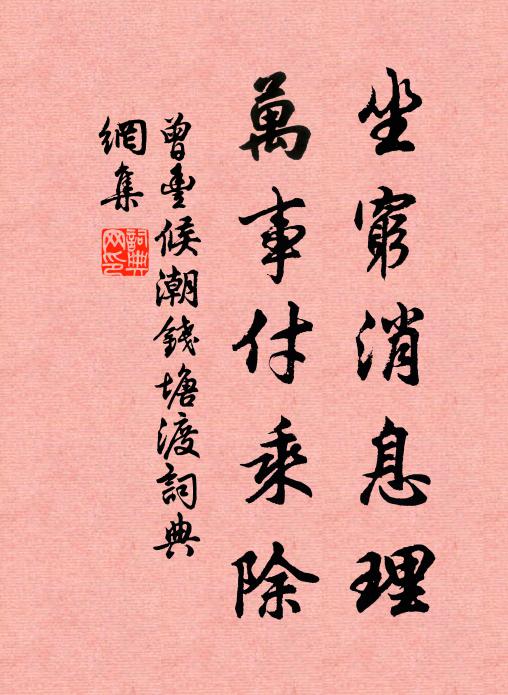 坐窮消息理
萬事付乘除
曾豐候潮錢塘渡詞典
網集
詞典
网印